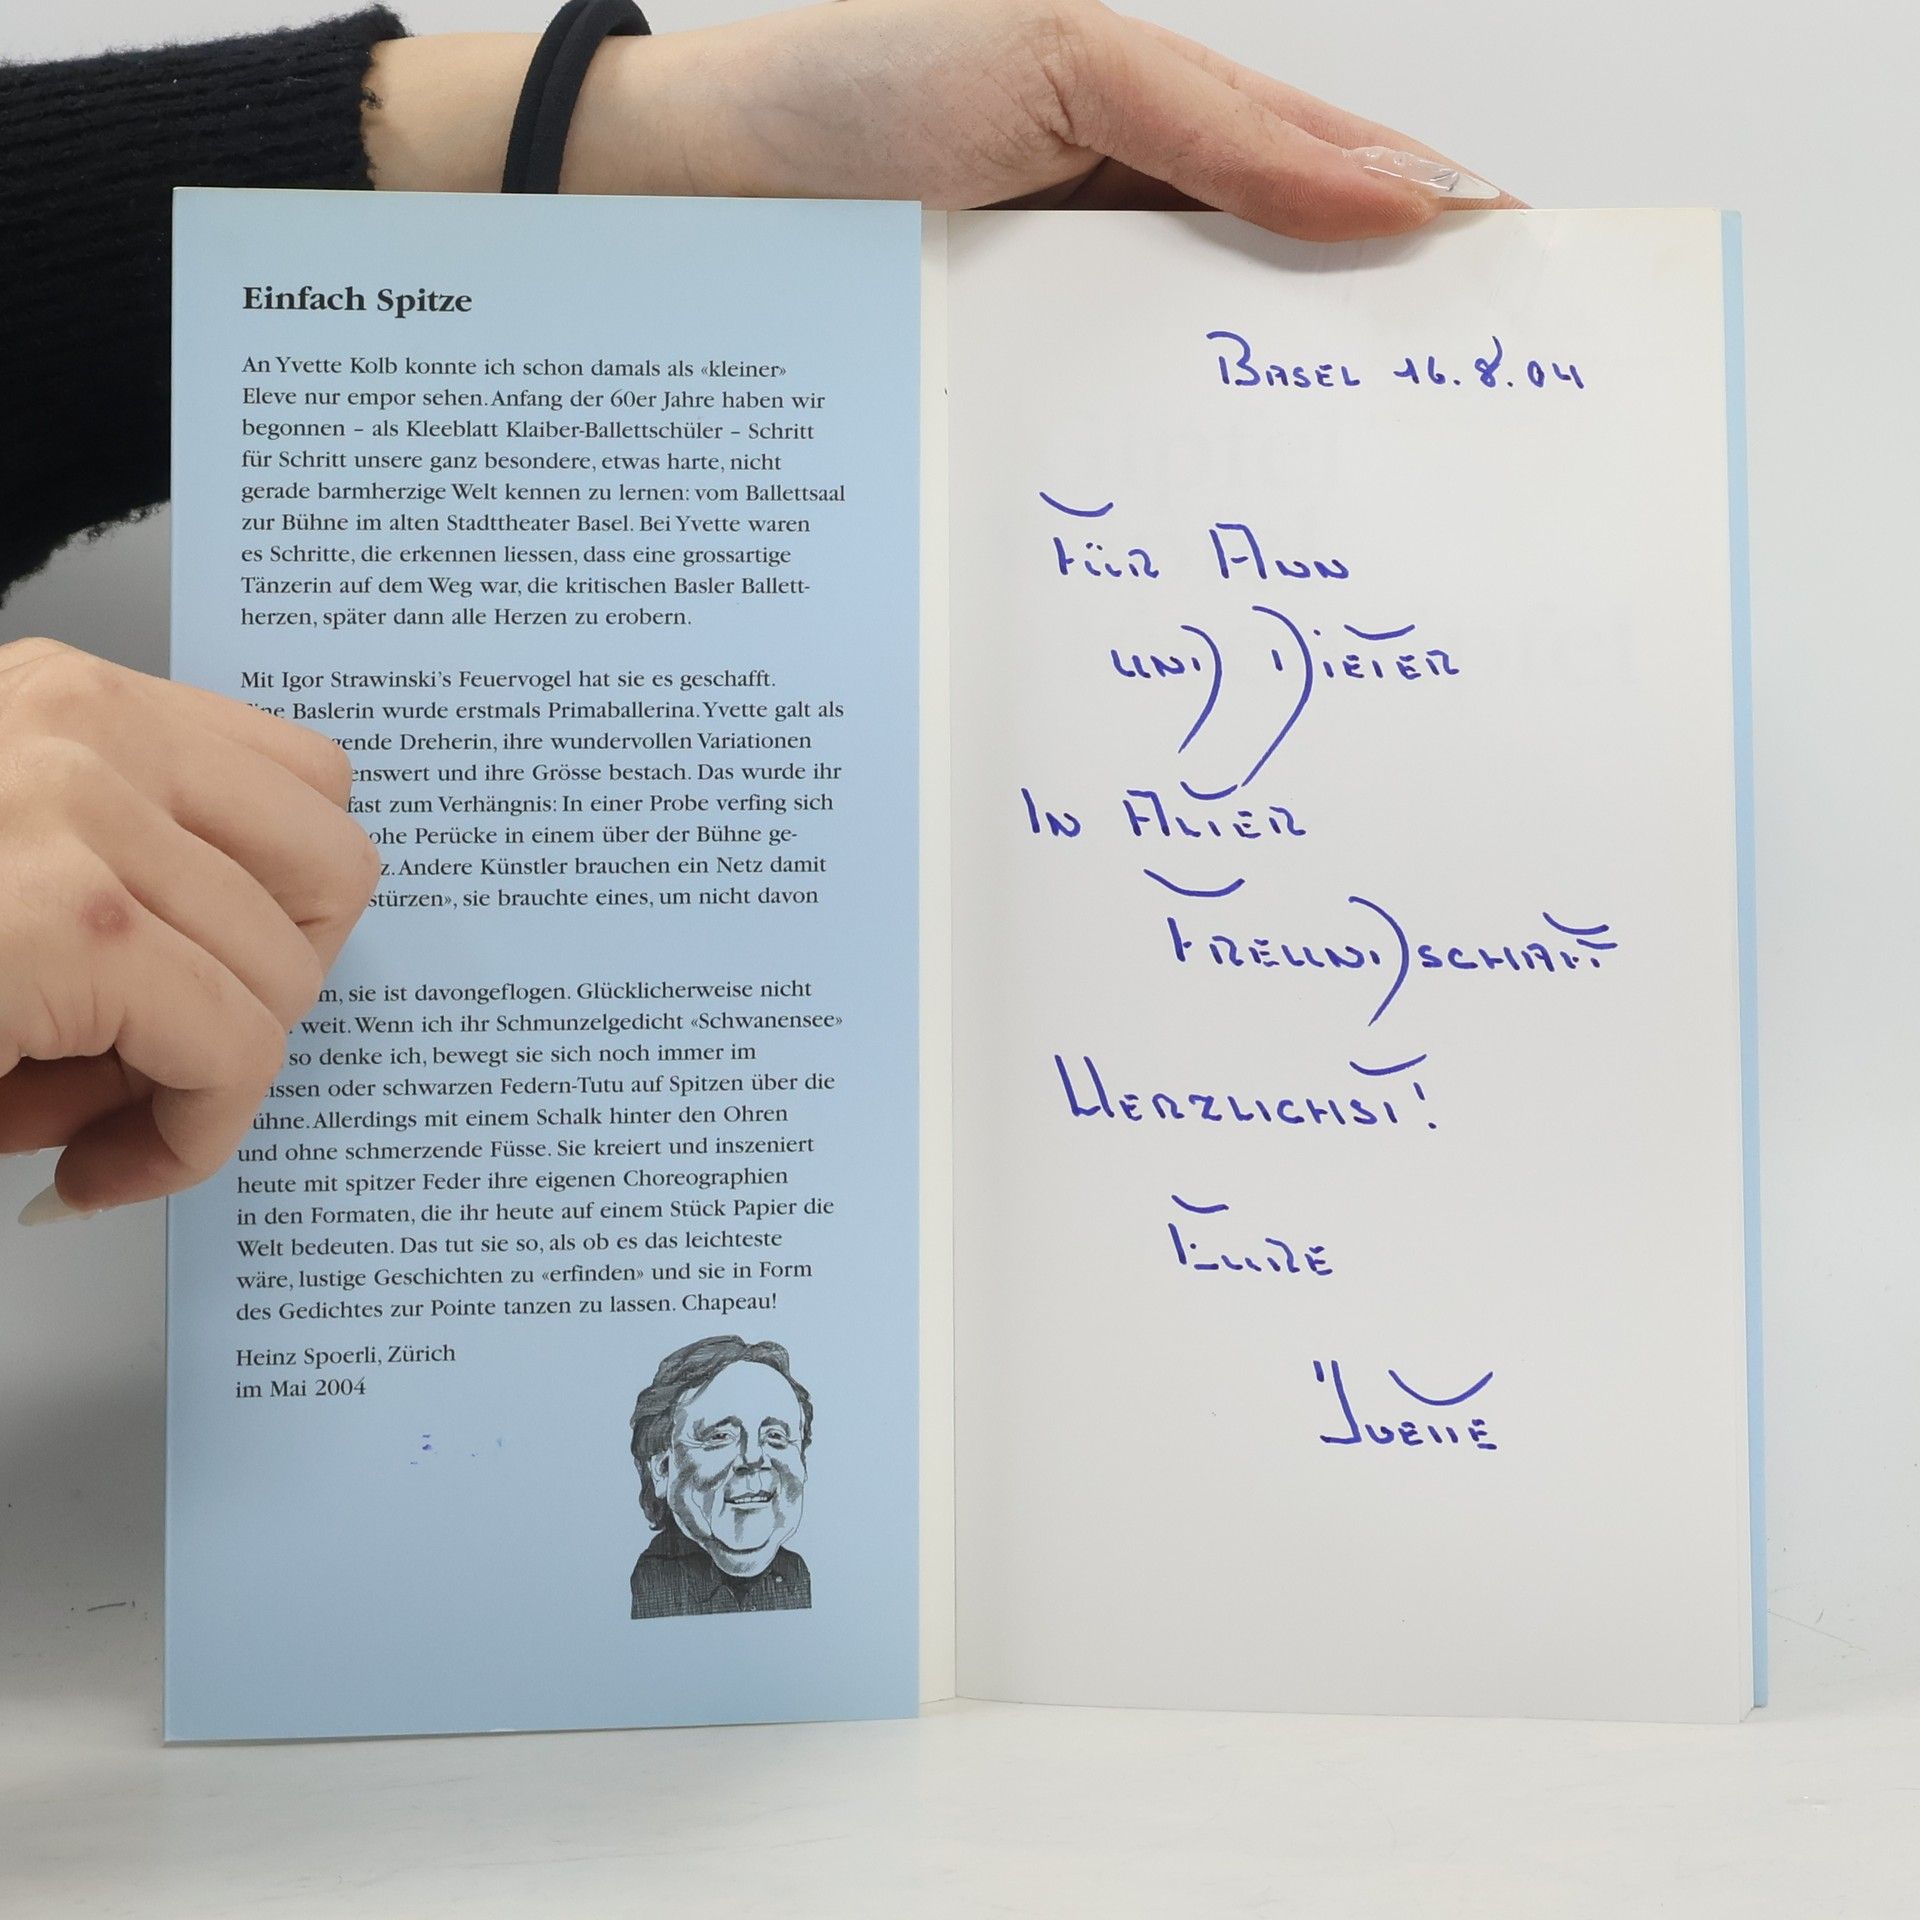 Einfach Spitze
An Yvette Kolb konnte ich schon damals als «kleiner»
Eleve nur empor sehen. Anfang der 60er Jahre haben wir
begonnen – als Kleeblatt Klaiber-Ballettschüler – Schritt
für Schritt unsere ganz besondere, etwas harte, nicht
gerade barmherzige Welt kennen zu lernen: vom Ballettsaal
zur Bühne im alten Stadttheater Basel. Bei Yvette waren
es Schritte, die erkennen liessen, dass eine grossartige
Tänzerin auf dem Weg war, die kritischen Basler Ballett-
herzen, später dann alle Herzen zu erobern.
Mit Igor Strawinski's Feuervogel hat sie es geschafft.
Baslerin wurde erstmals Primaballerina. Yvette galt als
Dreherin, ihre wundervollen Variationen
und ihre Grösse bestach. Das wurde ihr
fast zum Verhängnis: In einer Probe verfing sich
Perücke in einem über der Bühne ge-
Andere Künstler brauchen ein Netz damit
stürzen», sie brauchte eines, um nicht davon
sie ist davongeflogen. Glücklicherweise nicht
weit. Wenn ich ihr Schmunzelgedicht «Schwanensee»
so denke ich, bewegt sie sich noch immer im
oder schwarzen Federn-Tutu auf Spitzen über die
ühne. Allerdings mit einem Schalk hinter den Ohren
und ohne schmerzende Füsse. Sie kreiert und inszeniert
heute mit spitzer Feder ihre eigenen Choreographien
in den Formaten, die ihr heute auf einem Stück Papier die
Welt bedeuten. Das tut sie so, als ob es das leichteste
wäre, lustige Geschichten zu «erfinden» und sie in Form
des Gedichtes zur Pointe tanzen zu lassen. Chapeau!
Heinz Spoerli, Zürich
im Mai 2004
BASEL 16.8.04
FÜR ANN
UND DIETER
IN ALTER
FREUNDSCHAFT
HERZLICHST!
EURE
YVETTE